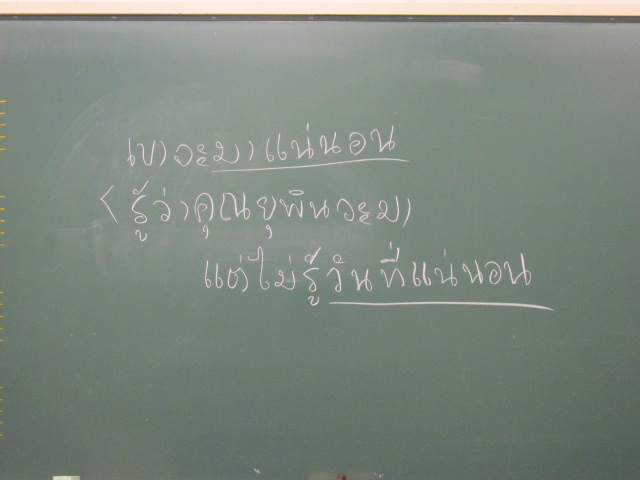 เขาจะมาแน่นอน
< รู้ว่าคุณยุพินจะมา
แต่ไม่รู้วันที่แน่นอน